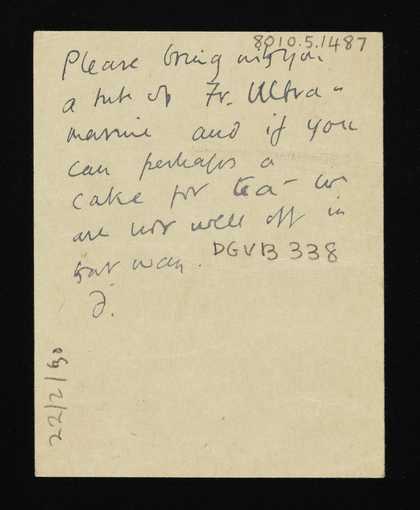 8010.5.1487
Please bring with you
a tube of Fr. Ultra-
marine and if you
can perhaps a
cake for tea – we
are not well off in
that way.
DGVB 338
D.
22/2/60